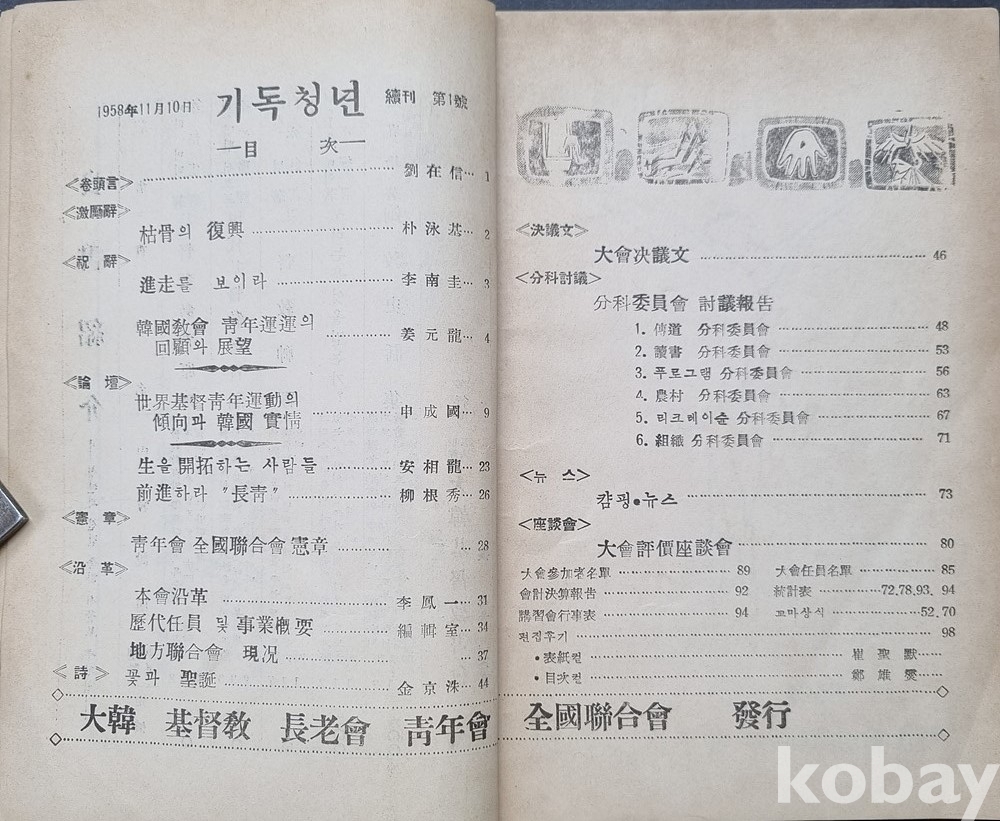 1958年11月10日 기독청년 續刊 第1號
—目 次—
<卷頭言> 劉在信 1
<激勵辭>
枯骨의 復興 朴泳基 2
<祝辭>
進走를 보이라 李南圭 3
韓國敎會 靑年運運의
回顧와 展望 姜元龍 4
<論壇>
世界基督靑年運動의
傾向과 韓國 實情 申成國 9
生을 開拓하는 사람들 安相龍 23
前進하라 "長靑" 柳根秀 26
<憲章>
靑年會 全國聯合會 憲章 28
<沿革>
本會沿革 李鳳一 31
歷代任員 및 事業槪要 編輯室 34
地方聯合會 現況 37
<詩> 꽃과 聖誕 金京洙 44
<決議文>
大會决議文 46
<分科討議>
分科委員會 討議報告
1. 傳道 分科委員會 48
2. 讀書 分科委員會 53
3. 푸로그램 分科委員會 56
4. 農村 分科委員會 63
5. 리크레이숀 分科委員會 67
6. 組織 分科委員會 71
<뉴스>
캼핑•뉴스 73
<座談會>
大會評價座談會 80
大會參加者名單 89 大會任員名單 85
會計決算報告 92 統計表 72.78.93. 94
講習會行事表 94 꼬마상식 52.70
편집후기 98
•表紙컽 崔聖默
•目次컽 鄭雄燮
大韓 基督敎 長老會 靑年會 全國聯合會 發行
kobay